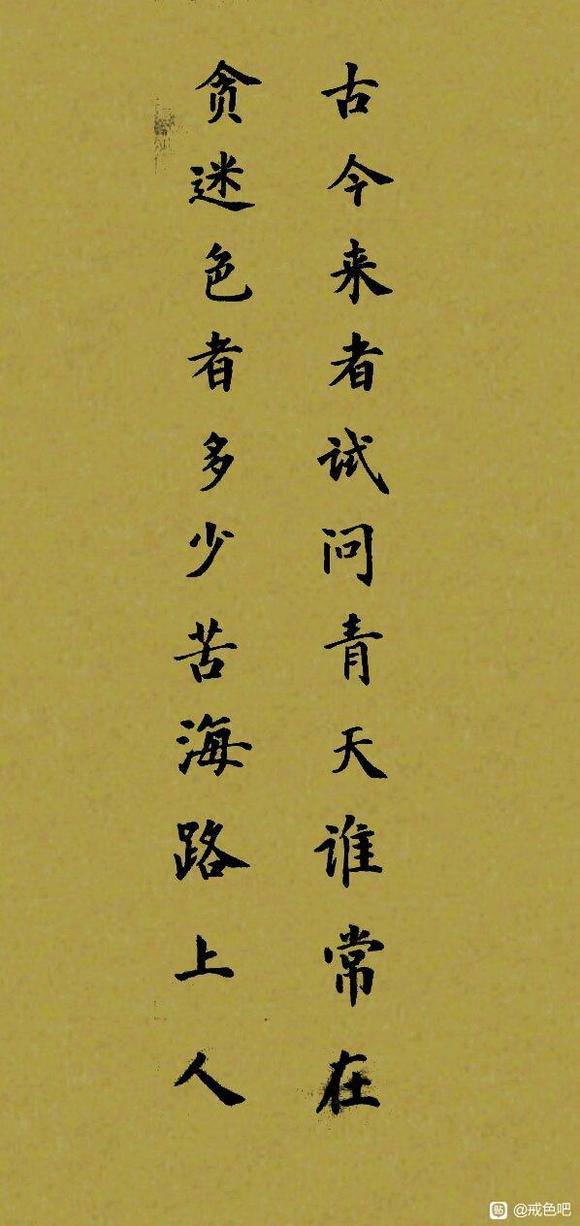 古今来者试问青天谁常在
贪迷色者多少苦海路上人
貼 @戒色吧